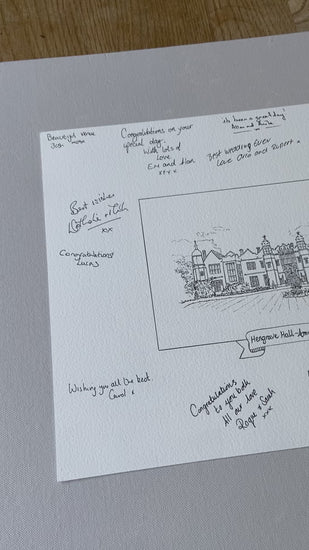 Beautiful venue
Congratulations on your
special day.
With lots of
Love
Eve and Alan
x x x x
its been a great day!
Best wedding Ever
Love Orin and Rupert x
Best wishes
xx
Congratulations
Wishing you all the best.
Carol x
Hengrave Hall
Congratulations
to you both
All our love
Roque & Sarah
xxx